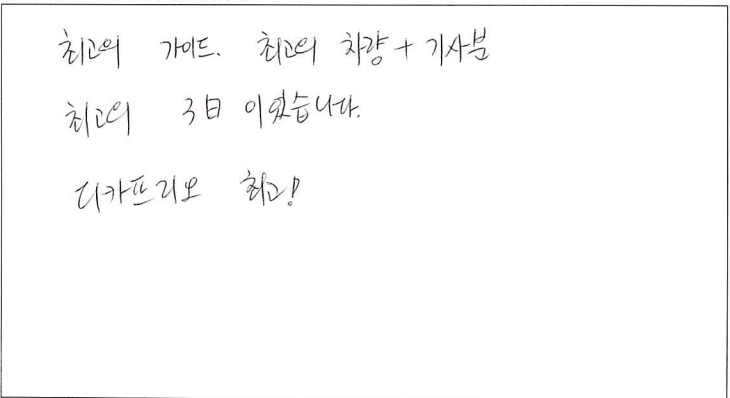 최고의 가이드. 최고의 차량 + 기사분
최고의 3日 이었습니다.
디카프리오 최고!